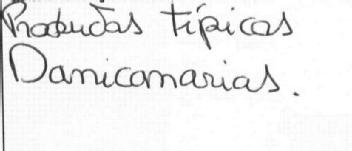 Produtos típicos
Danicomarias.